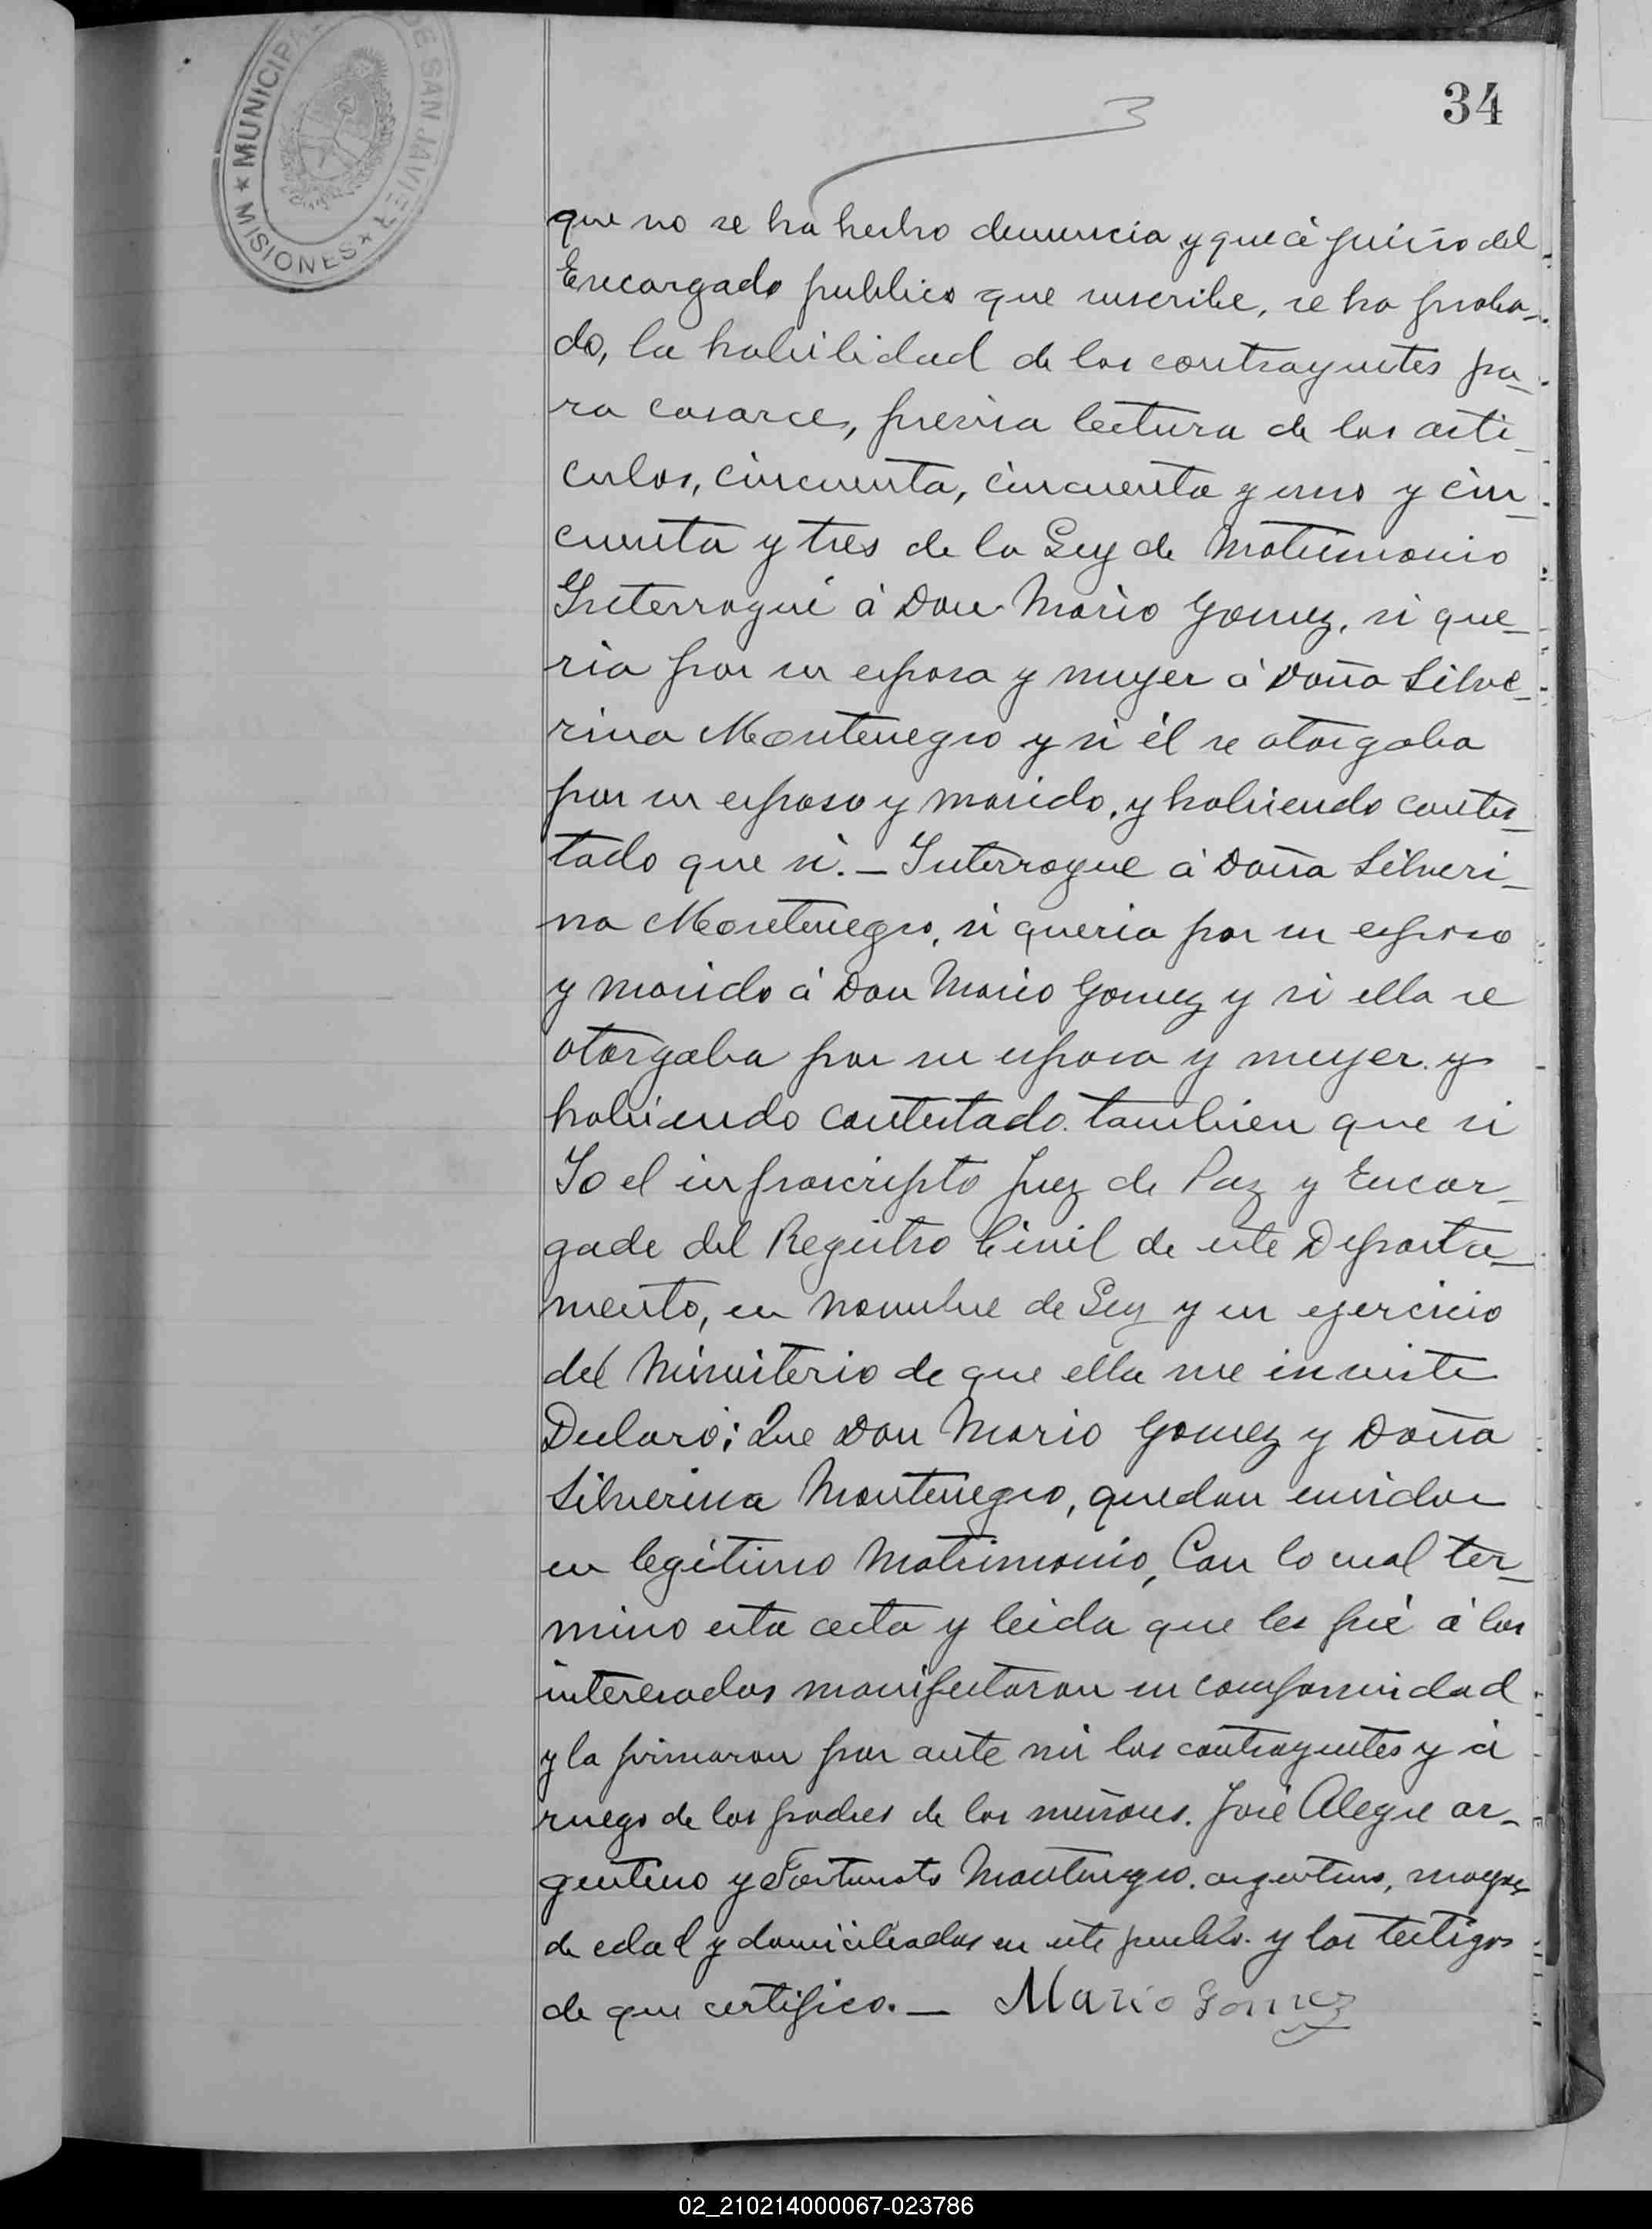 34
3
MUNICIPAL DE SAN JAVIER
★ MISIONES ★
que no se ha hecho denuncia y que á juicio del
Encargado publico que suscribe, se ha proba-
do, la habilidad de los contrayentes pa-
ra casarce, previa lectura de los arti-
culos, cincuenta, cincuenta y uno y cin-
cuenta y tres de la Ley de Matrimonio
Interrogué á Don Mario Gomez, si que-
ria por su esposa y mujer á Doña Silve-
rina Montenegro y si él se otorgaba
por su esposo y marido, y habiendo contes-
tado que si. — Interrogue á Doña Silveri-
na Montenegro, si queria por su esposo
y marido á Don Mario Gomez y si ella se
otorgaba por su esposa y mujer y
habiendo contestado tambien que si
Yo el infrascripto Juez de Paz y Encar-
gado del Registro Civil de este Departa-
mento, en nombre de Ley y en ejercicio
del Ministerio de que ella me inviste
Declaró: Que Don Mario Gomez y Doña
Silverina Montenegro, quedan unidos
en legítimo Matrimonio, Con lo cual ter-
mino esta acta y leida que les fué á los
interesados manifestaron su conformidad
y la firmaron por ante mi los contrayentes y á
ruego de los padres de los menores. José Alegre ar-
gentino y Fortunato Montenegro. argentino, mayores
de edad y domiciliados en este pueblo. y los testigos
de que certifico. — Mario Gomez
02_210214000067-023786